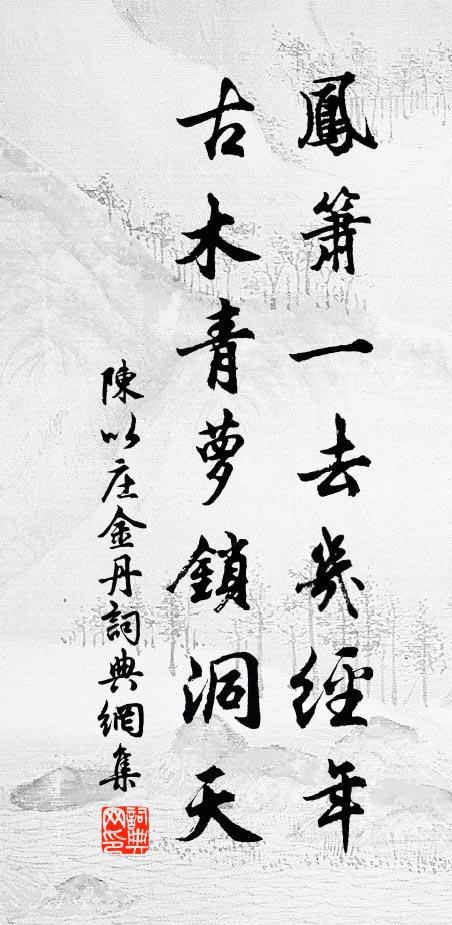 鳳簫一去幾經年
古木青蘿鎖洞天
陳以庄金丹詞典網集
詞典網印